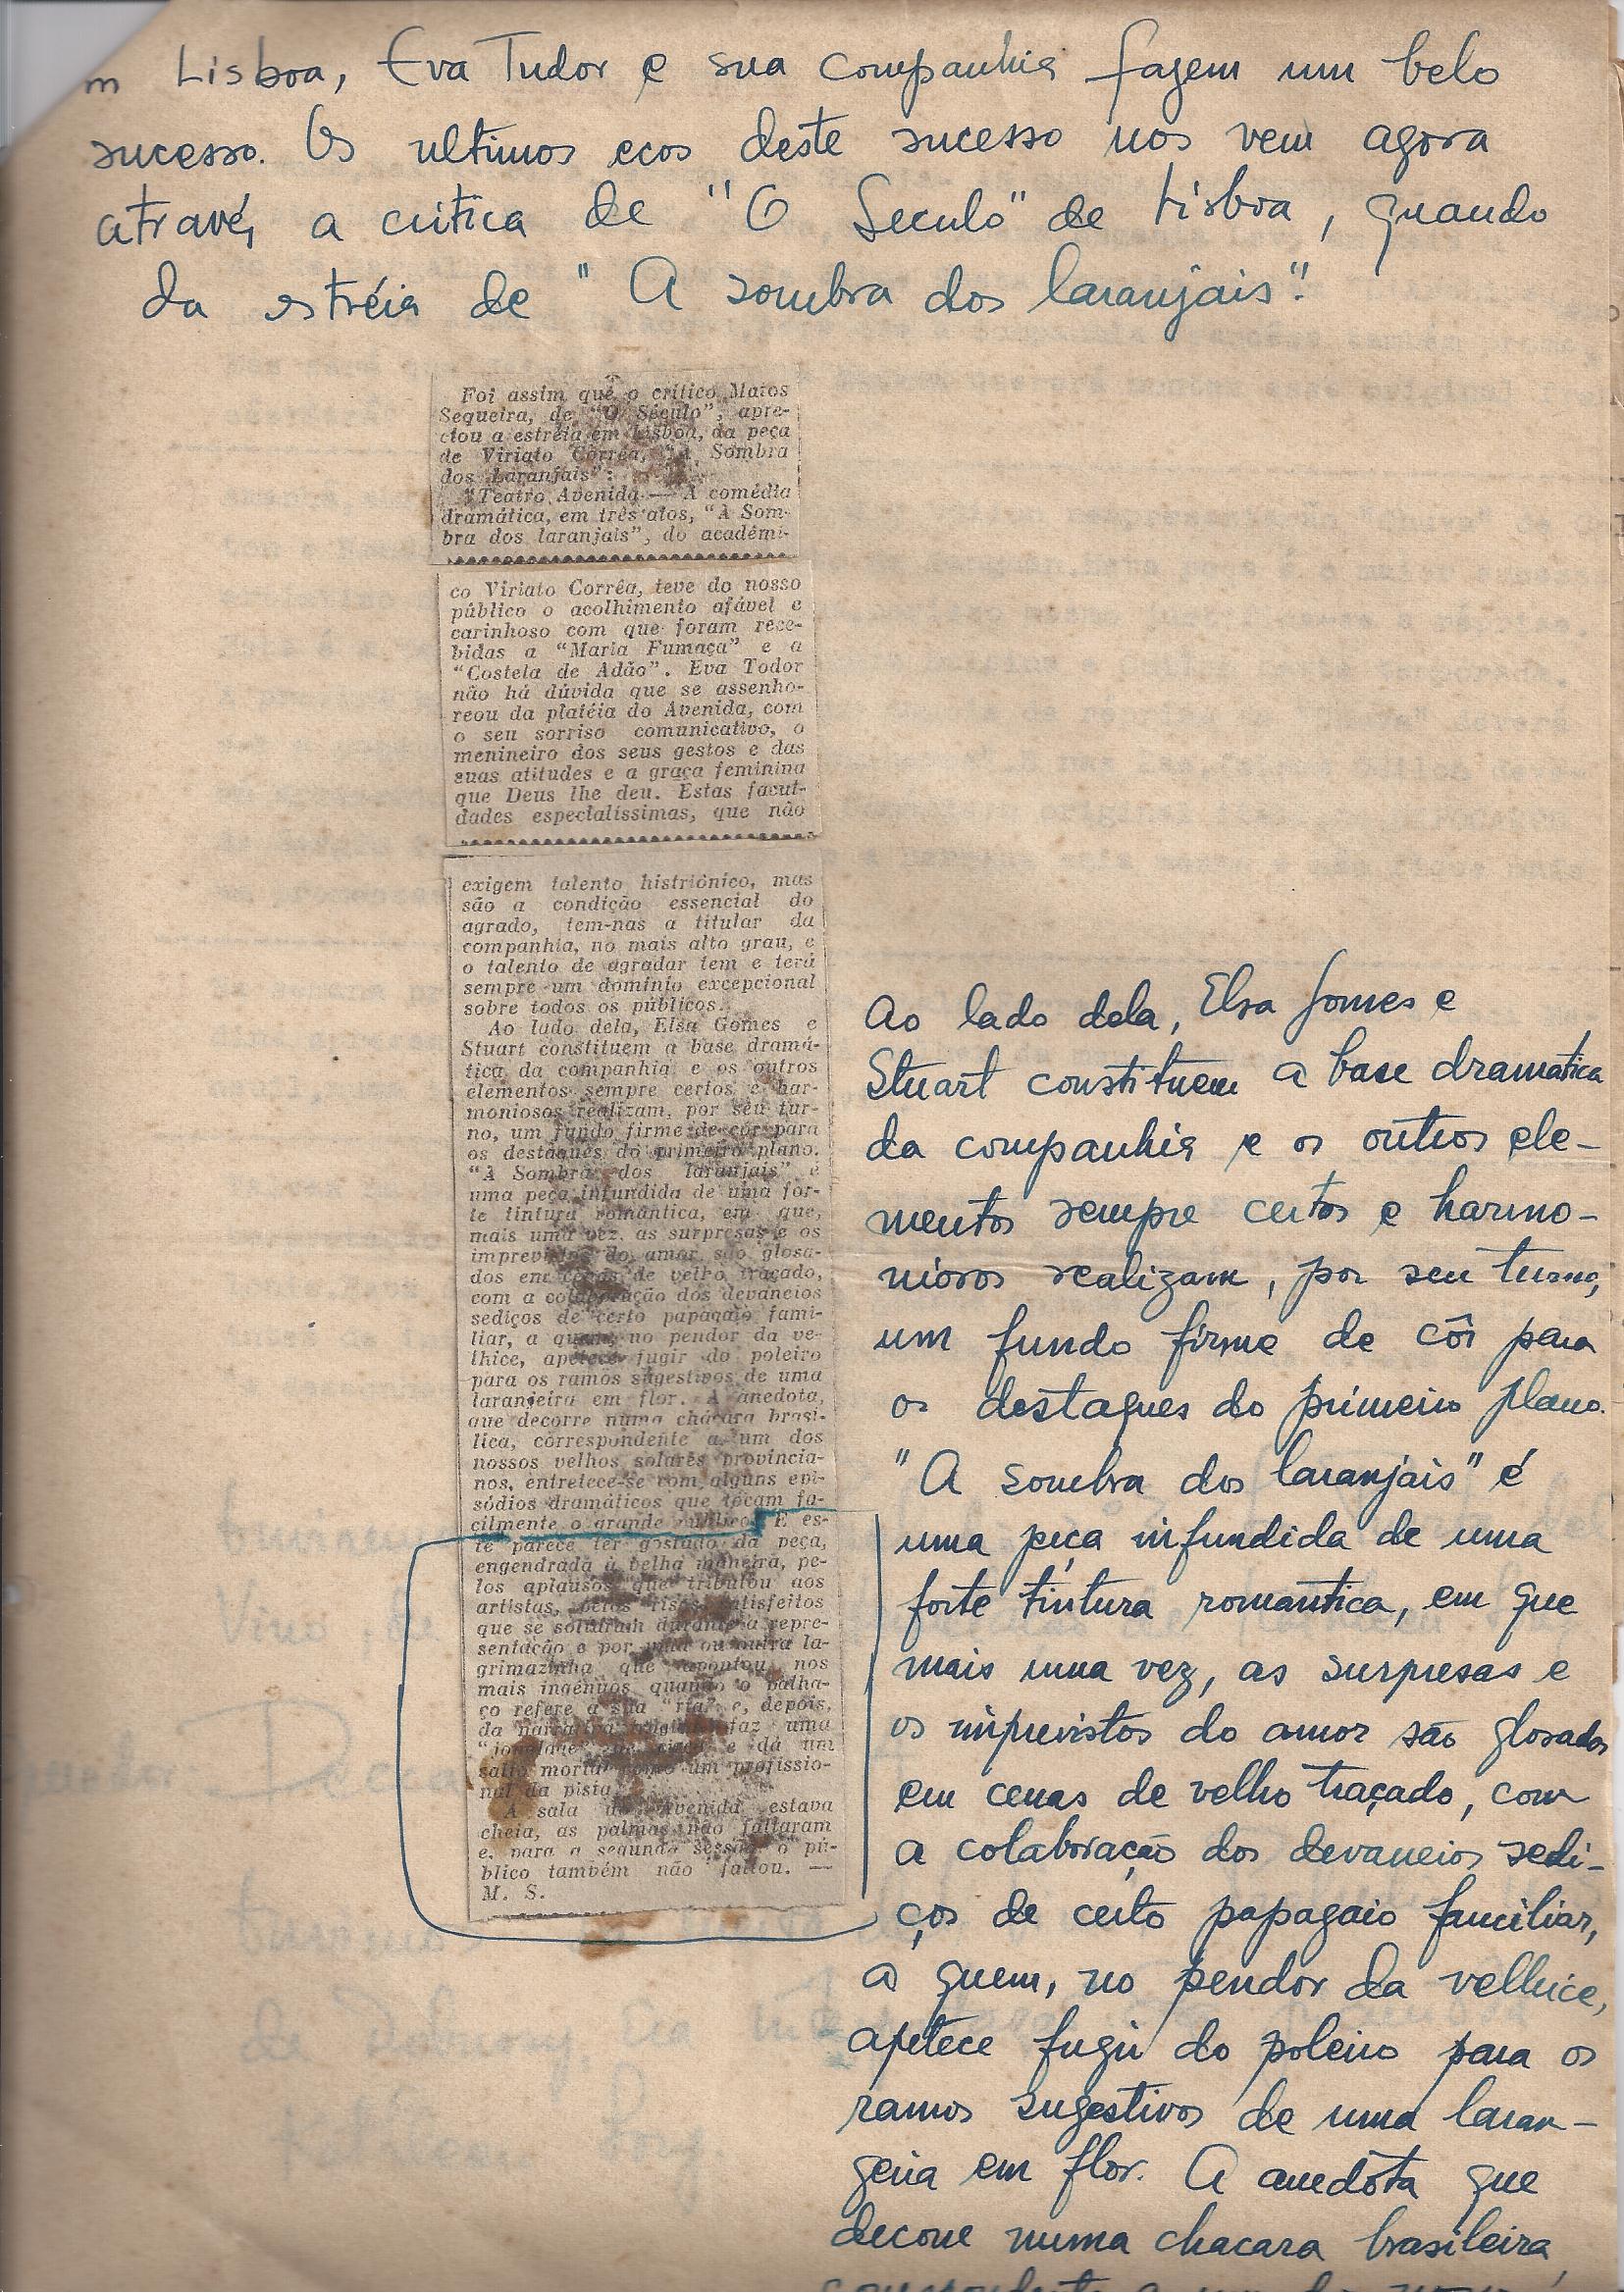 m Lisboa, Eva Tudor e sua companhia fazem um belo
sucesso. Os ultimos ecos deste sucesso nos vem agora
através a critica de "O Seculo" de Lisboa, quando
da estréia de "A sombra dos laranjais".
Foi assim que o crítico Matos
Sequeira, de "O Século", apre-
ciou a estréia em Lisboa, da peça
de Viriato Corrêa, "A Sombra
dos Laranjais":
"Teatro Avenida — A comédia
dramática, em três atos, "À Som-
bra dos laranjais", do acadêmi-
co Viriato Corrêa, teve do nosso
público o acolhimento afável e
carinhoso com que foram rece-
bidas a "Maria Fumaça" e a
"Costela de Adão". Eva Todor
não há dúvida que se assenho-
reou da platéia do Avenida, com
o seu sorriso comunicativo, o
menineiro dos seus gestos e das
suas atitudes e a graça feminina
que Deus lhe deu. Estas facul-
dades especialíssimas, que não
exigem talento histriônico, mas
são a condição essencial do
agrado, tem-nas a titular da
companhia, no mais alto grau, e
o talento de agradar tem e terá
sempre um domínio excepcional
sobre todos os públicos.
Ao lado dela, Elsa Gomes e
Stuart constituem a base dramá-
tica da companhia e os outros
elementos sempre certos e har-
moniosos realizam, por seu tur-
no, um fundo firme de côr para
os destaques do primeiro plano.
"À Sombra dos laranjais" é
uma peça infundida de uma for-
te tintura romântica, em que,
mais uma vez, as surpresas e os
imprevistos do amor são glosa-
dos em cenas de velho traçado,
com a colaboração dos devaneios
sediços de certo papagaio fami-
liar, a quem, no pendor da ve-
lhice, apetece fugir do poleiro
para os ramos sugestivos de uma
laranjeira em flor. A anedota,
que decorre numa chácara brasi-
lica, correspondente a um dos
nossos velhos solares provincia-
nos, entretece-se com alguns epi-
sódios dramáticos que tocam fa-
cilmente o grande público. E es-
te parece ter gostado da peça,
engendrada à velha maneira, pe-
los aplausos que tributou aos
artistas, pelos risos satisfeitos
que se soltaram durante a repre-
sentação e por uma ou outra la-
grimazinha que apontou nos
mais ingênuos quando o palha-
ço refere a sua e, depois,
da narrativa faz uma
e dá um
salto mortal como um profissio-
nal da pista.
A sala do Avenida estava
cheia, as palmas não faltaram
e, para a segunda sessão o pú-
blico também não faltou. —
M. S.
Ao lado dela, Elsa Gomes e
Stuart constituem a base dramatica
da companhia e os outros ele-
mentos sempre certos e harmo-
niosos realizam, por seu turno,
um fundo firme de côr para
os destaques do primeiro plano.
"A sombra dos laranjais" é
uma peça infundida de uma
forte tintura romantica, em que
mais uma vez, as surpresas e
os imprevistos do amor são glosados
em cenas de velho traçado, com
a colaboração dos devaneios sedi-
ços de certo papagaio familiar,
a quem, no pendor da velhice,
apetece fugir do poleiro para os
ramos sugestivos de uma laran-
geira em flor. A anedóta que
decorre numa chacara brasileira